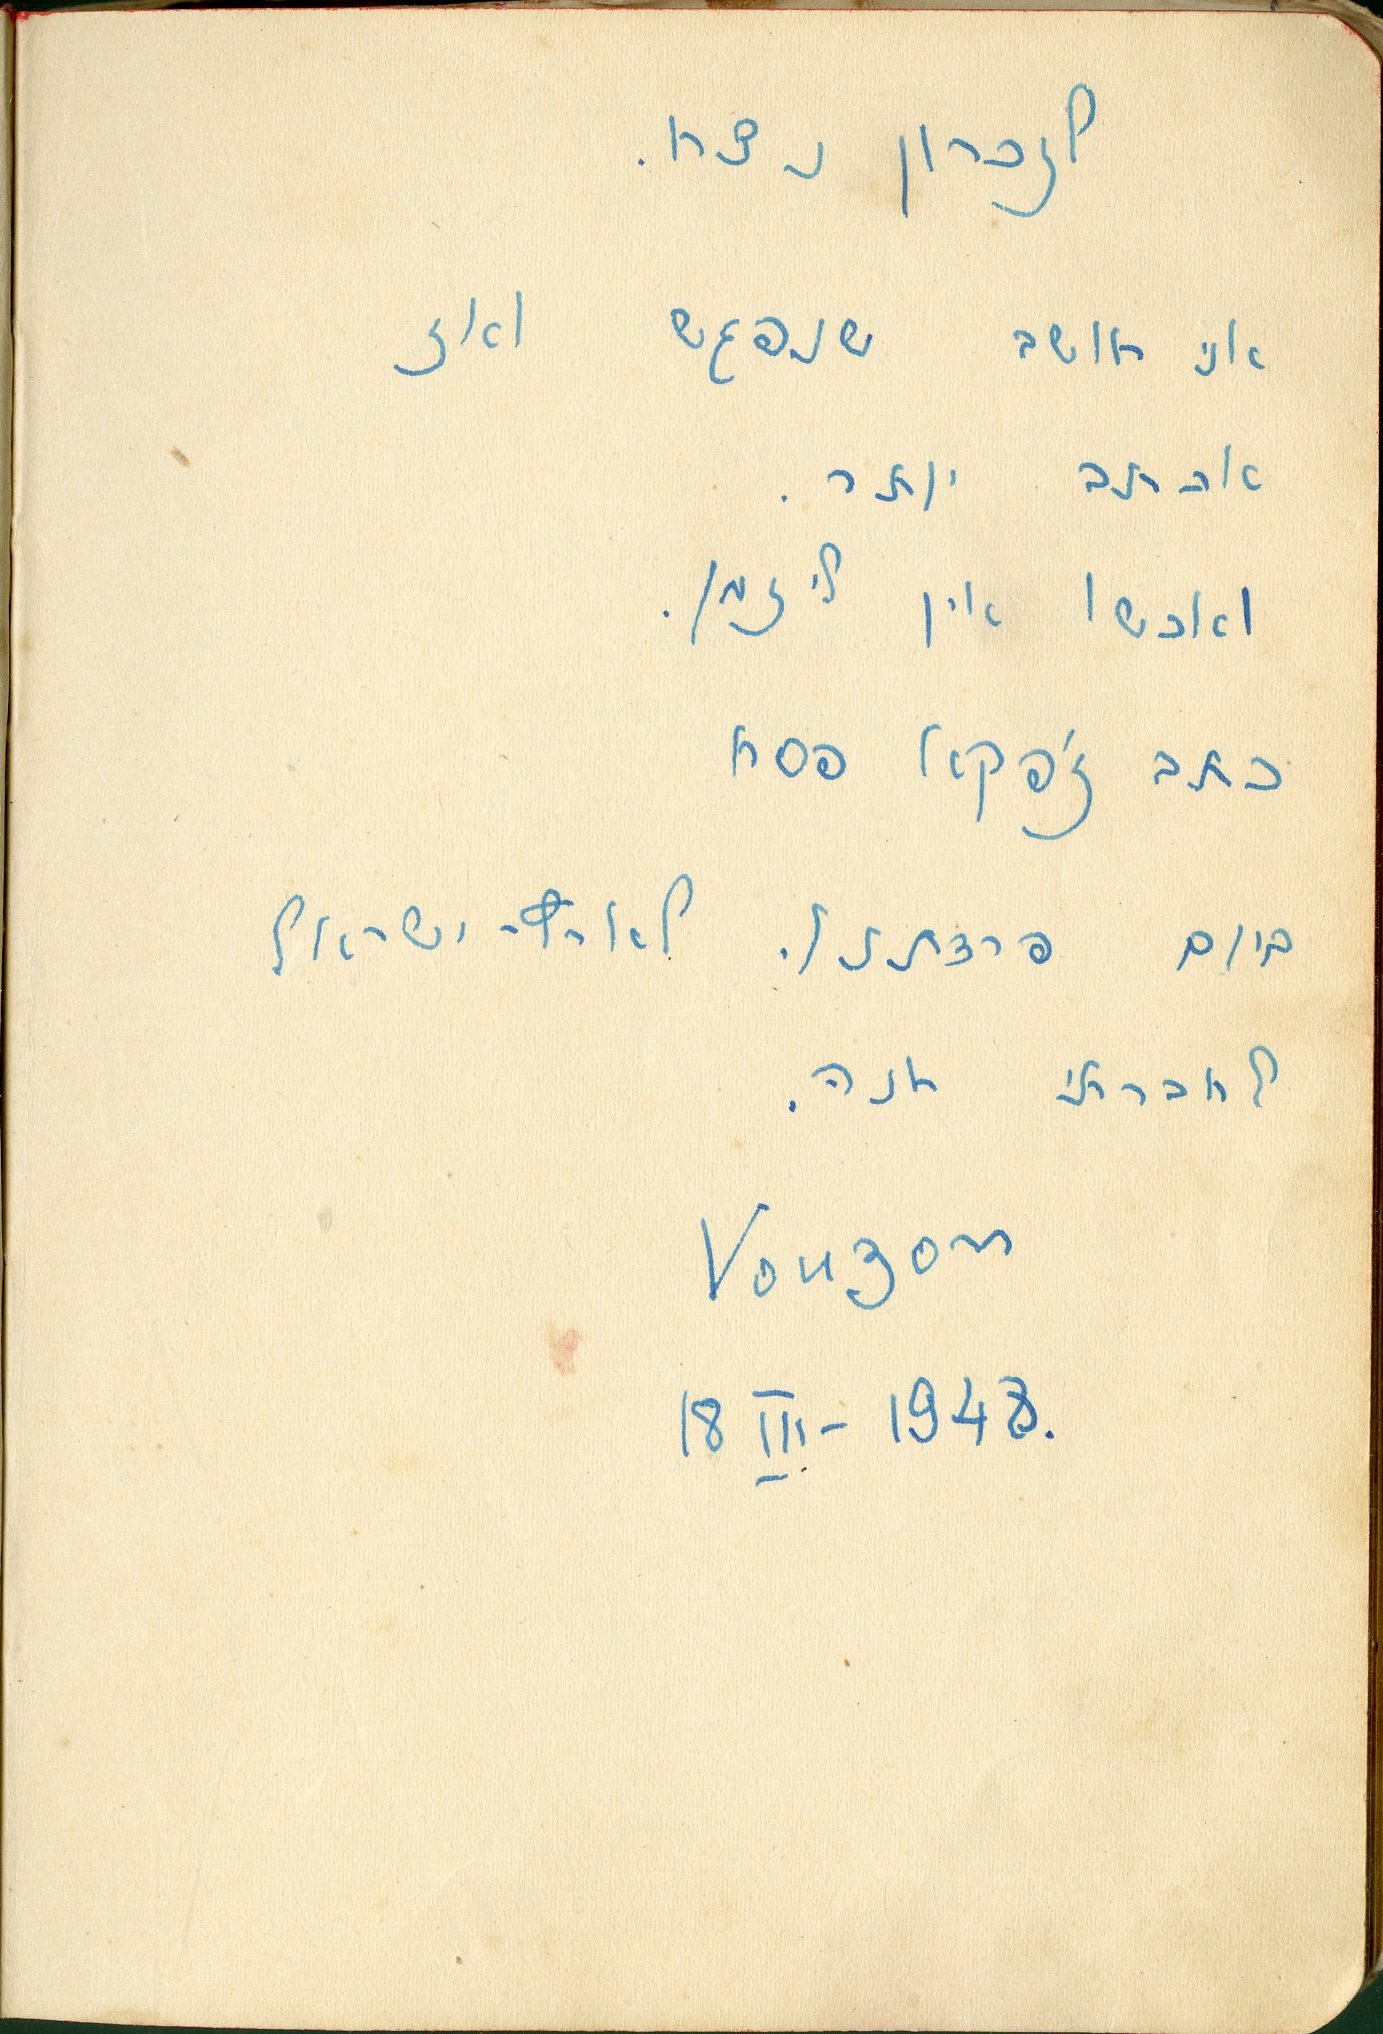 לזכרון נצח.
אני חושב שנפגש ואז
אכתב יותר.
ואכשו אין לי זמן.
כתב ז'פקא פסח
ביום פרצתנו. לארץ-ישראל
לחברתי חנה.
18 III - 1948.